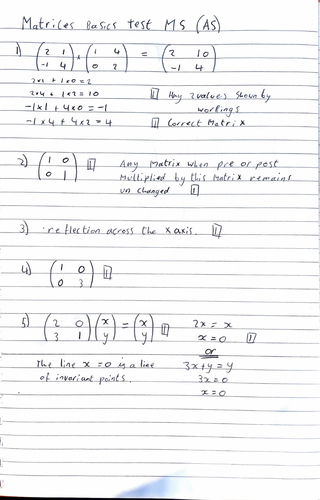 Matrices Basics test MS (AS)
1) (2 1 / -1 4) x (1 4 / 0 2) = (2 10 / -1 4)
2x1 + 1x0 = 2
2x4 + 1x2 = 10 [1] Any 2 values shown by
-1x1 + 4x0 = -1 workings
-1x4 + 4x2 = 4 [1] Correct Matrix
2) (1 0 / 0 1) [1] Any Matrix when pre or post
Multiplied by this Matrix remains
unchanged [1]
3) reflection across the x axis. [1]
4) (1 0 / 0 3) [1]
5) (2 0 / 3 1) (x / y) = (x / y) [1] 2x = x
x = 0 [1]
or
The line x = 0 is a line 3x+y = y
of invariant points. 3x = 0
x = 0